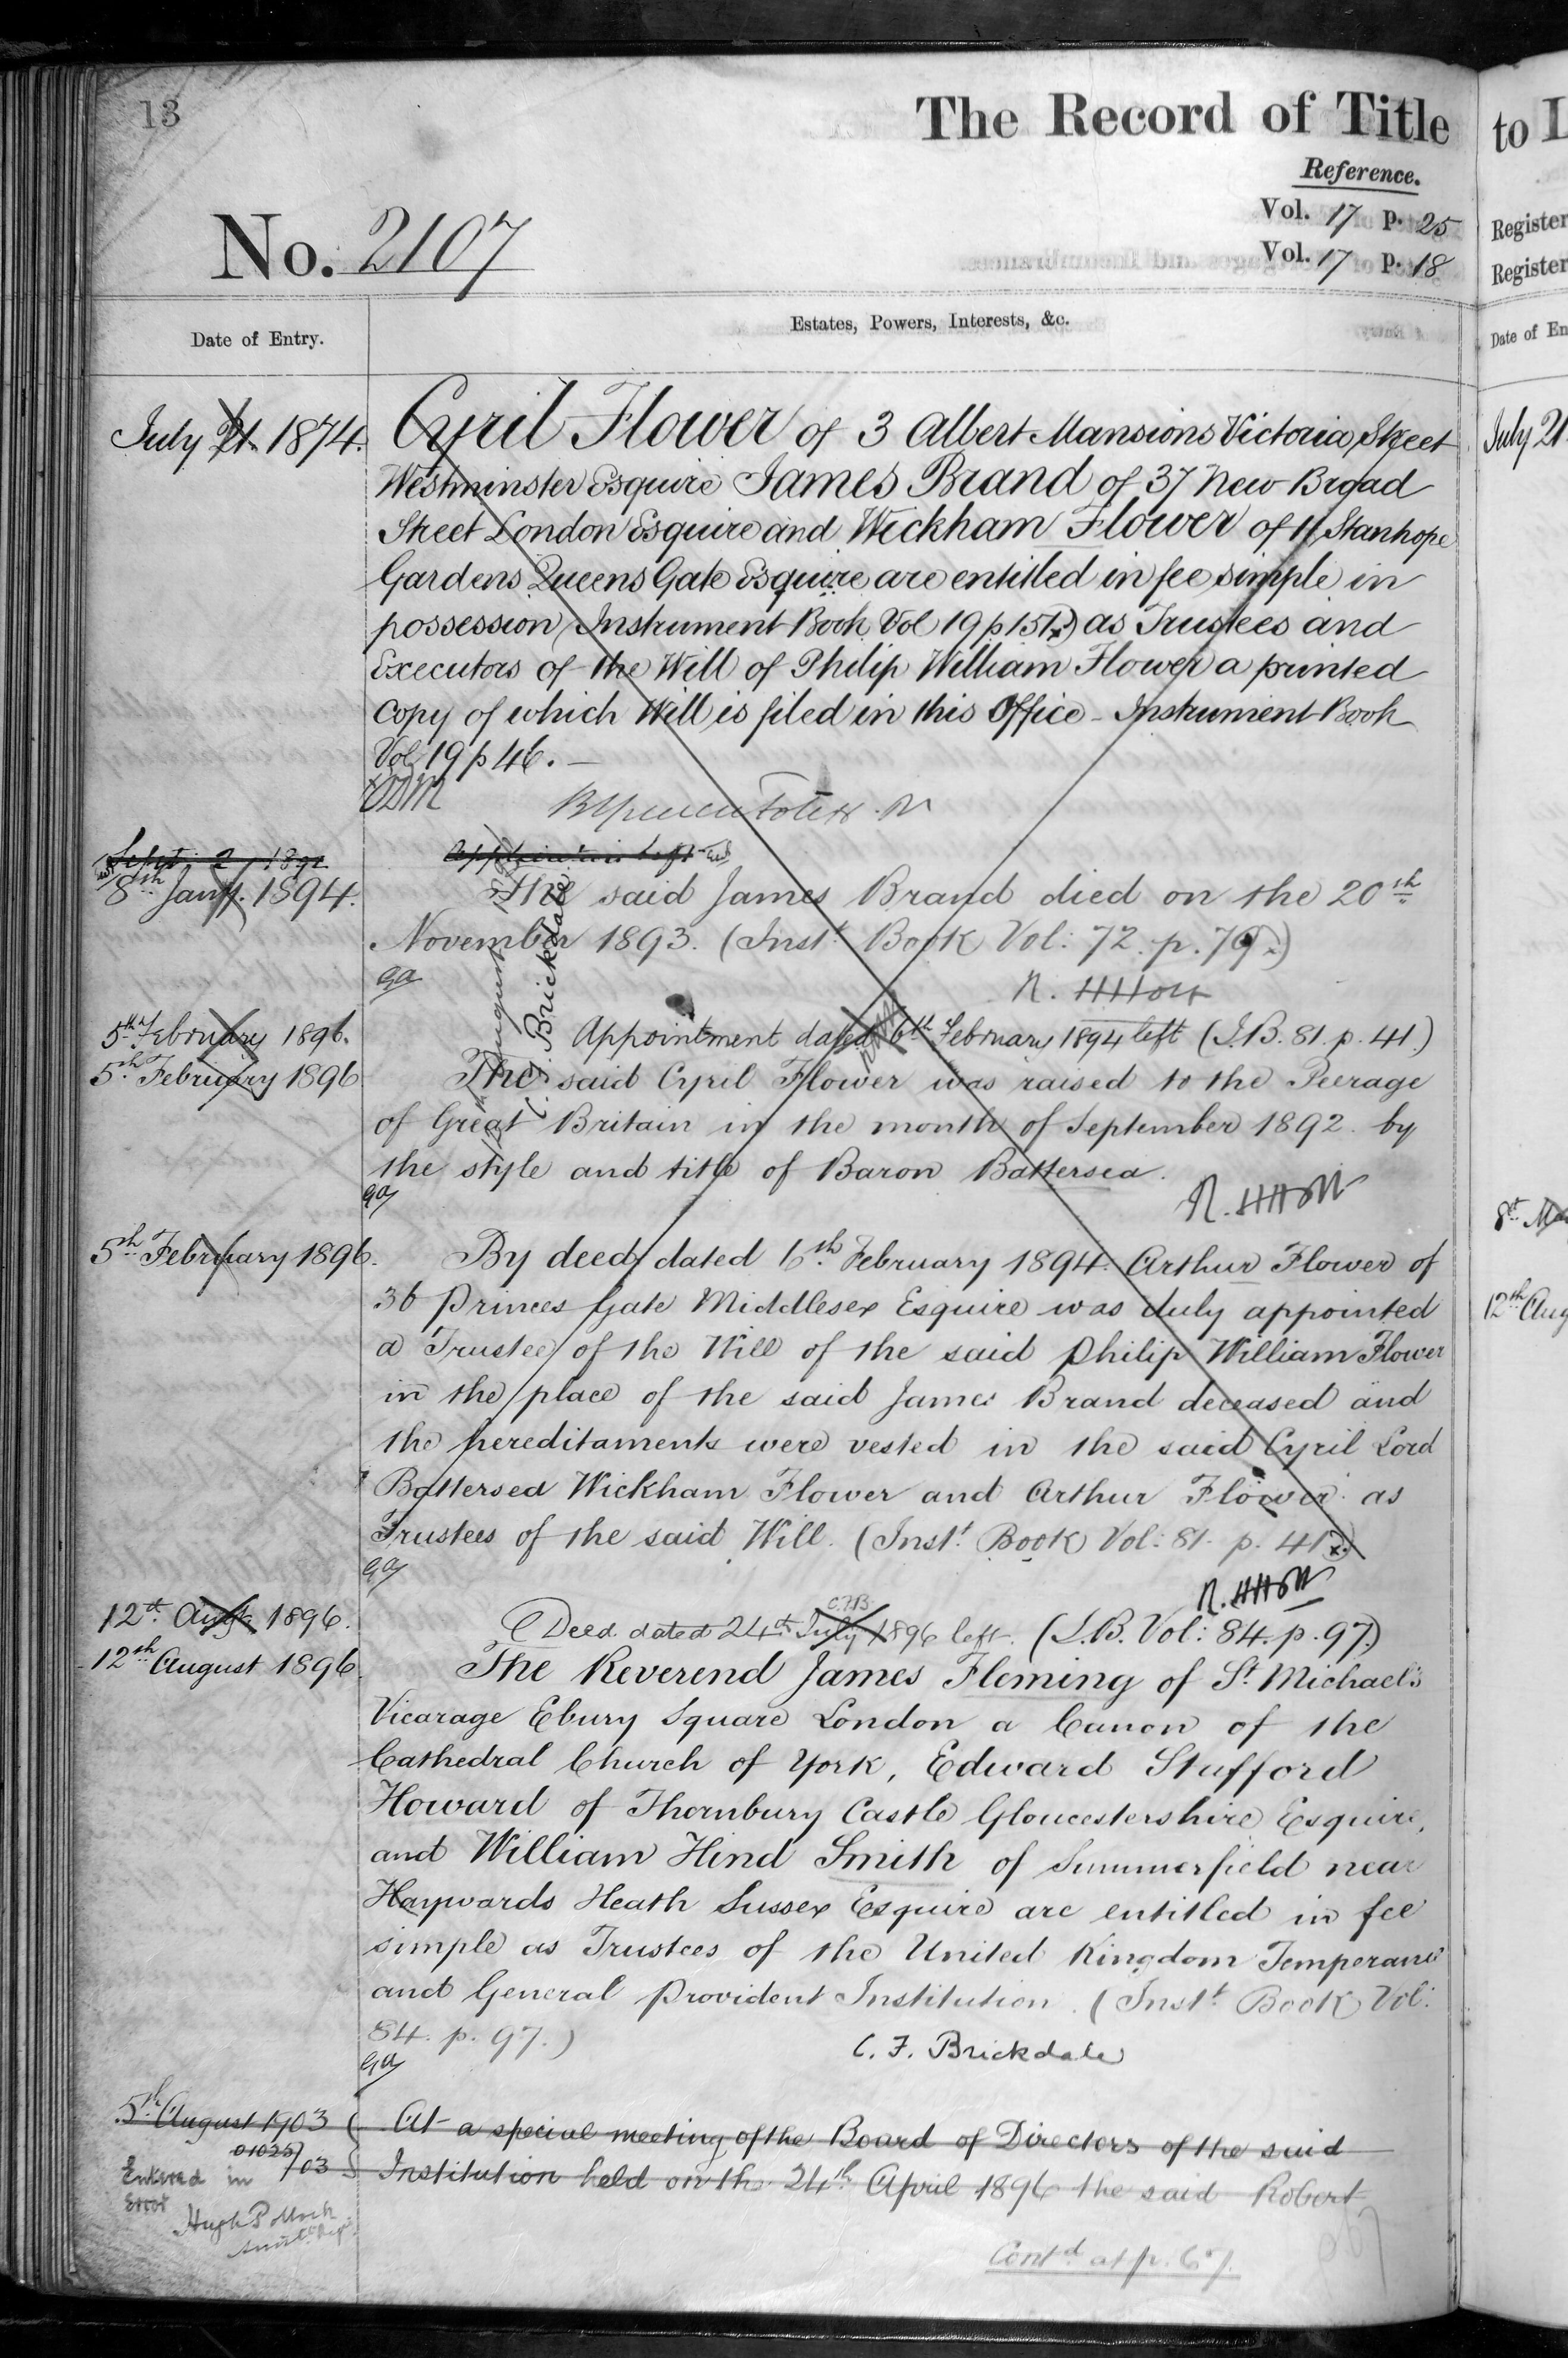 13
The Record of Title
Reference.
Vol. 17 p. 25
Vol. 17 p. 18
No. 2107
Date of Entry.
Estates, Powers, Interests, &c.
July 21. 1874.
Cyril Flower of 3 Albert Mansions Victoria Street
Westminster Esquire James Brand of 37 New Broad
Street London Esquire and Wickham Flower of 11 Stanhope
Gardens Queens Gate Esquire are entitled in fee simple in
possession (Instrument Book Vol 19 p 151) as Trustees and
Executors of the Will of Philip William Flower a printed
Copy of which Will is filed in this Office - Instrument Book
Vol 19 p 46. —
Sept: 2 1892
8th Jany. 1894.
The said James Brand died on the 20th
November 1893. (Inst. Book Vol: 72. p. 79.)
ga
R. H Holt
5th February 1896.
Appointment dated 6th February 1894 left (I.B. 81. p. 41.)
5th February 1896
The said Cyril Flower was raised to the Peerage
of Great Britain in the month of September 1892. by
the style and title of Baron Battersea.
ga
R. H Holt
August
C. F. Brickdale
5th February 1896.
By deed dated 6th February 1894. Arthur Flower of
36 Princes Gate Middlesex Esquire was duly appointed
a Trustee of the Will of the said Philip William Flower
in the place of the said James Brand deceased and
the hereditaments were vested in the said Cyril Lord
Battersea Wickham Flower and Arthur Flower as
Trustees of the said Will. (Inst. Book Vol: 81. p. 41.)
ga
R. H Holt
12th Augt. 1896.
C.F.B.
Deed dated 24th July 1896 left. (I.B. Vol: 84. p. 97.)
12th August 1896.
The Reverend James Fleming of St. Michael's
Vicarage Ebury Square London a Canon of the
Cathedral Church of York, Edward Stafford
Howard of Thornbury Castle Gloucestershire Esquire,
and William Hind Smith of Summerfield near
Haywards Heath Sussex Esquire are entitled in fee
simple as Trustees of the United Kingdom Temperance
and General Provident Institution. (Inst. Book Vol:
84. p. 97.)
ga
C. F. Brickdale
5th August 1903
At a special meeting of the Board of Directors of the said
Institution held on the 24th April 1896 the said Robert
01025/03
Entered in
Error
Hugh Pollock
Contd at p. 67.
to L
Register
Register
Date of En
July 21
8th
12th Aug